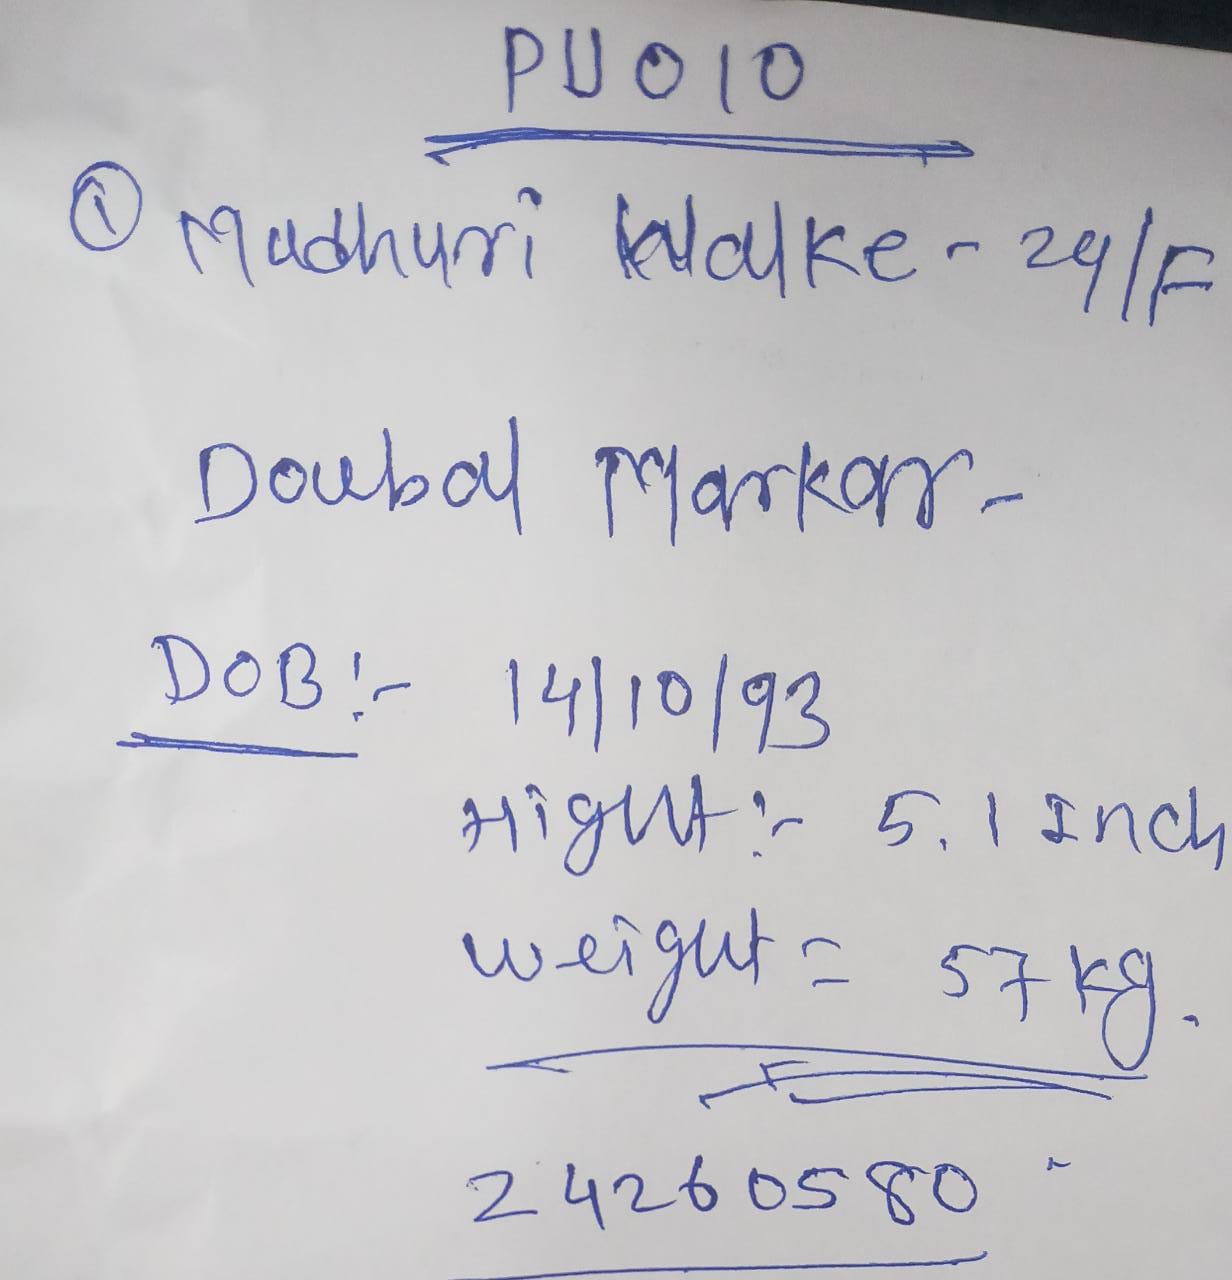 PU010
① Madhuri Walke - 24/F
Doubal Markar -
DOB :- 14/10/93
Hight :- 5.1 Inch
weight = 57 kg.
24260580